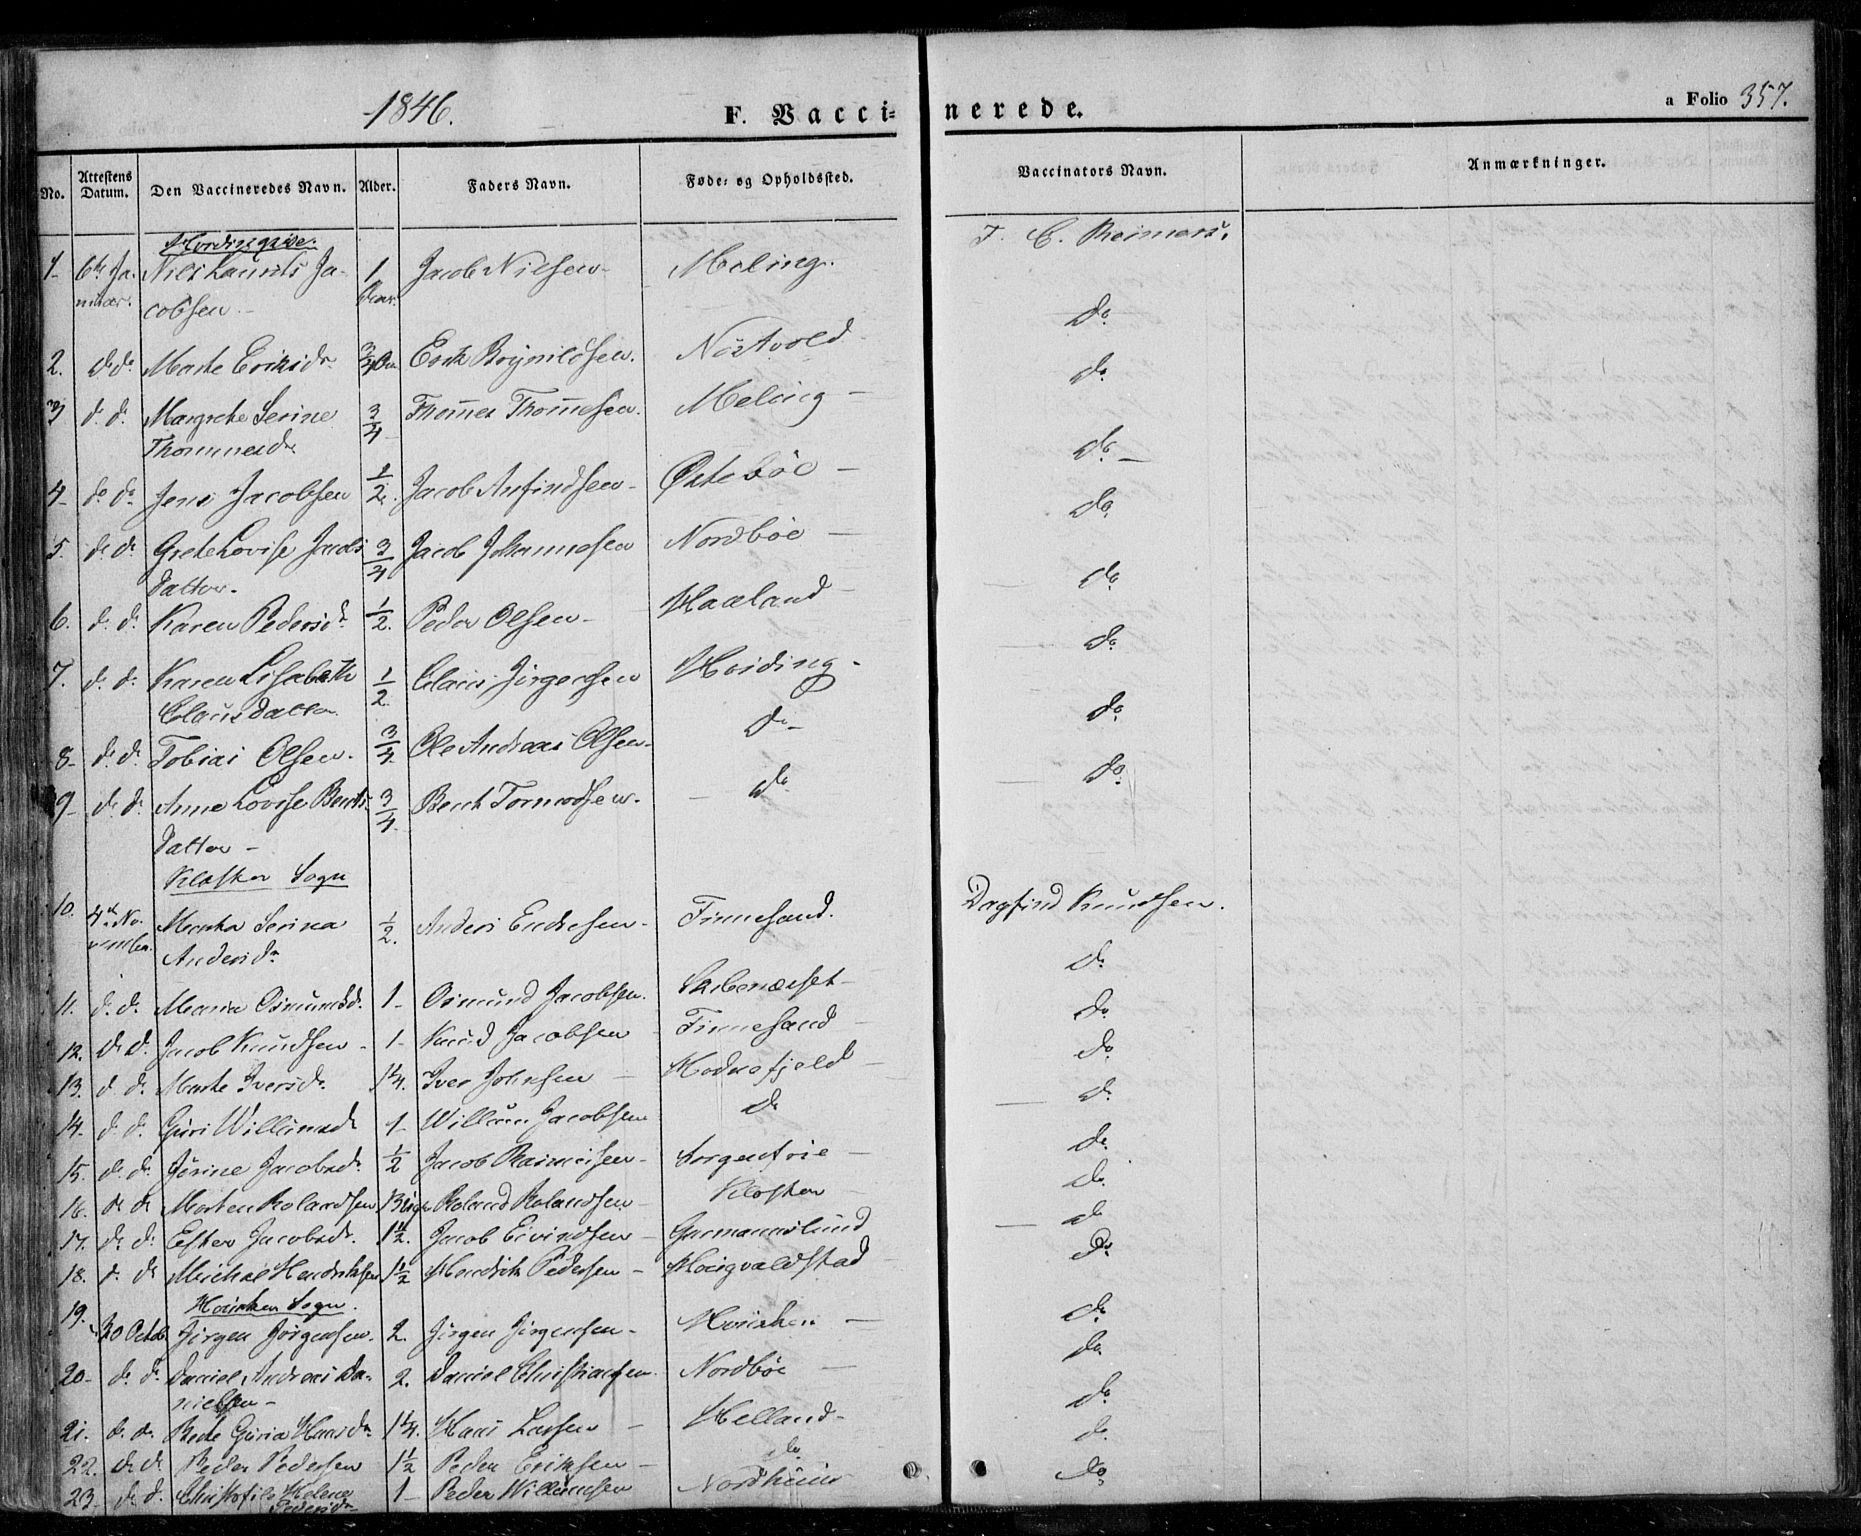 1846. F. Vaccinerede. a Folio 357.
No. Attestens Datum. Den Vaccineredes Navn. Alder. Faders Navn. Føde- og Opholdssted. Vaccinators Navn. Anmærkninger.
1. 6te Januar. Niels Laurits Jacobsen 1 Jacob Nielsen Meling. C. Reimers.
2. do do Marte Eriksdr 3/4 Erik Reynildsen. Nøstvold do
3 do do Margrete Serine Thommesdr 3/4 Thommes Thommesen. Meling do
4 do do Jens Jacobsen 1/2. Jacob Anfindsen Østebøe do
5. do do Grete Lovise Jacobsdatter. 3/4 Jacob Johannesen Nordbøe do
6. do do Karen Pedersdr 1/2. Peder Olsen Haaland do
7. do do Karen Lisabeth Clausdatter 1/2. Claus Jørgensen Hviding do
8 do do Tobias Olsen. 3/4. Ole Andreas Olsen do do
9 do do Anne Lovise Bentsdatter 3/4. Bent Tormodsen. do do
Kloster Sogn
10. 4de November. Marta Serina Andersdr 1/2. Anders Endresen Finnesand. Dagfind Knudsen.
11. do do Maria Osmundsdr 1 Osmund Jacobsen. Skibenæsset do
12. do do Jacob Knudsen 1 Knud Jacobsen Finnesand do
13. do do Marte Iversdr 1 1/4. Iver Johnsen Hodnefjeld do
14. do do Guri Willumsdr 1 Willum Jacobsen do do
15. do do Jørine Jacobsdr 1/2 Jacob Rasmusen Sorgenfrie do
16. do do Morten Rolandsen Roland Rolandsen Kloster do
17. do do Ester Jacobsdr. 1 1/2. Jacob Eivindsen Garmannslund do
18. do do Michal Hendriksen 1 1/2 Hendrik Pedersen Hougvaldstad do
Housken Sogn.
19. 20 Octob Jørgen Jørgensen. 2. Jørgen Jørgensen Housken do
20 do do Daniel Andreas Danielsen 2. Daniel Christiansen Nordbøe do
21. do do Berte Guria Hansdr 1 1/4. Hans Larsen Helland do
22. do do Peder Pedersen 1 1/2 Peder Eriksen do do
23 do do Helene Pedersdr 1 Peder Willumsen Nordhuus do